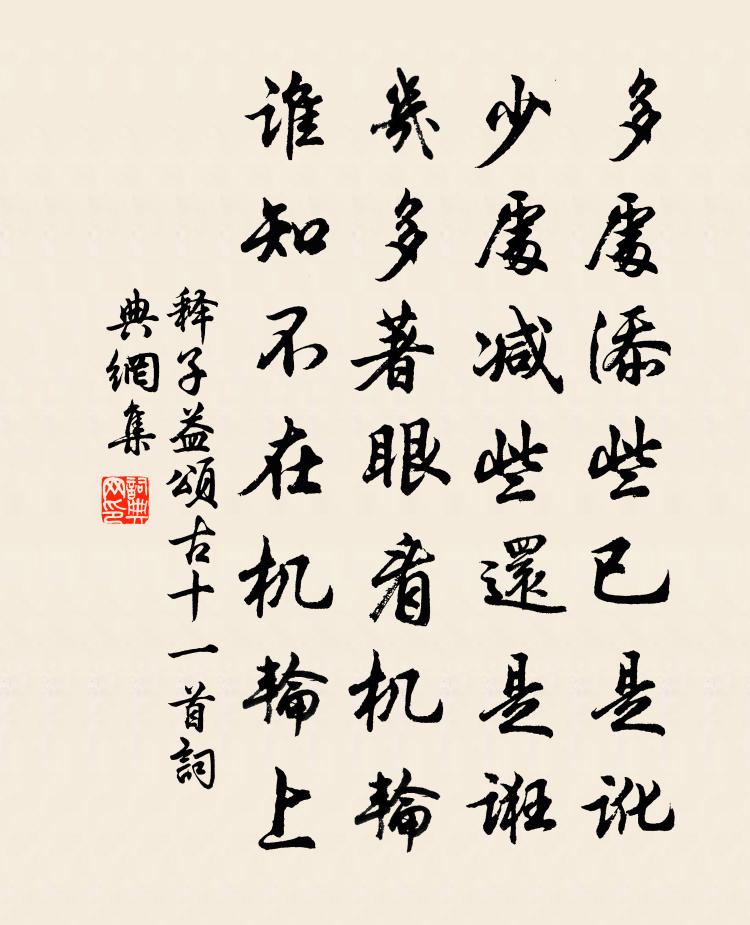 多處添些已是訛
少處減些還是誑
幾多著眼看机輪
誰知不在机輪上
释子益頌古十一首詞
典網集
詞典网印